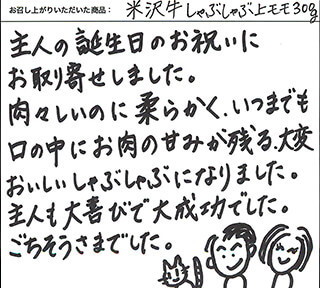 お召し上がりいただいた商品： 米沢牛しゃぶしゃぶ上モモ300g
主人の誕生日のお祝いに
お取り寄せしました。
肉々しいのに柔らかく、いつまでも
口の中にお肉の甘みが残る、大変
おいしいしゃぶしゃぶになりました。
主人も大喜びで大成功でした。
ごちそうさまでした。